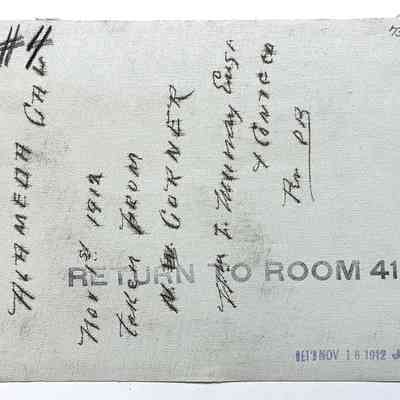 #4
ALAMEDA CAL
NOV 1st 1912
TAKEN FROM
N.W. CORNER
Wm I. Murray Engr
& CONT CO
Per PB
RETURN TO ROOM 41
REC'D NOV 18 1912
73